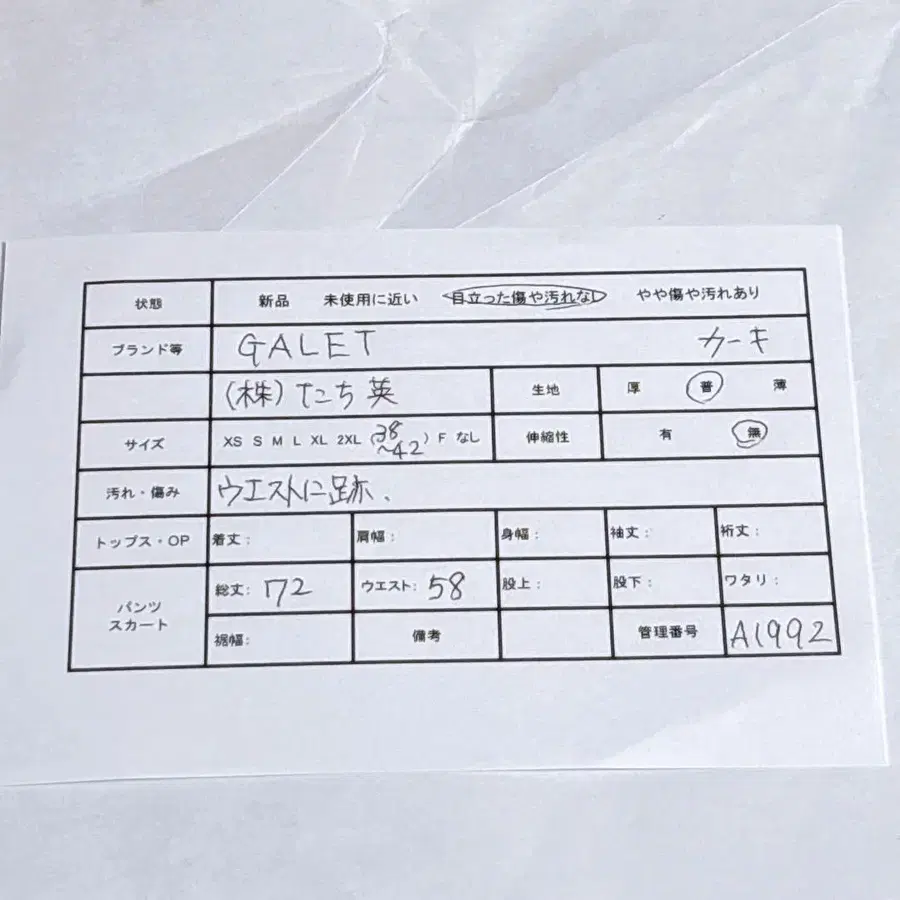 状態 新品 未使用に近い 目立った傷や汚れなし やや傷や汚れあり
ブランド等 GALET カーキ
(株)たち英 生地 厚 普 薄
サイズ XS S M L XL 2XL (38~42) F なし 伸縮性 有 無
汚れ・傷み ウエストに跡、
トップス・OP 着丈: 肩幅: 身幅: 袖丈: 裄丈:
パンツ スカート 総丈: 72 ウエスト: 58 股上: 股下: ワタリ:
裾幅: 備考 管理番号 A1992